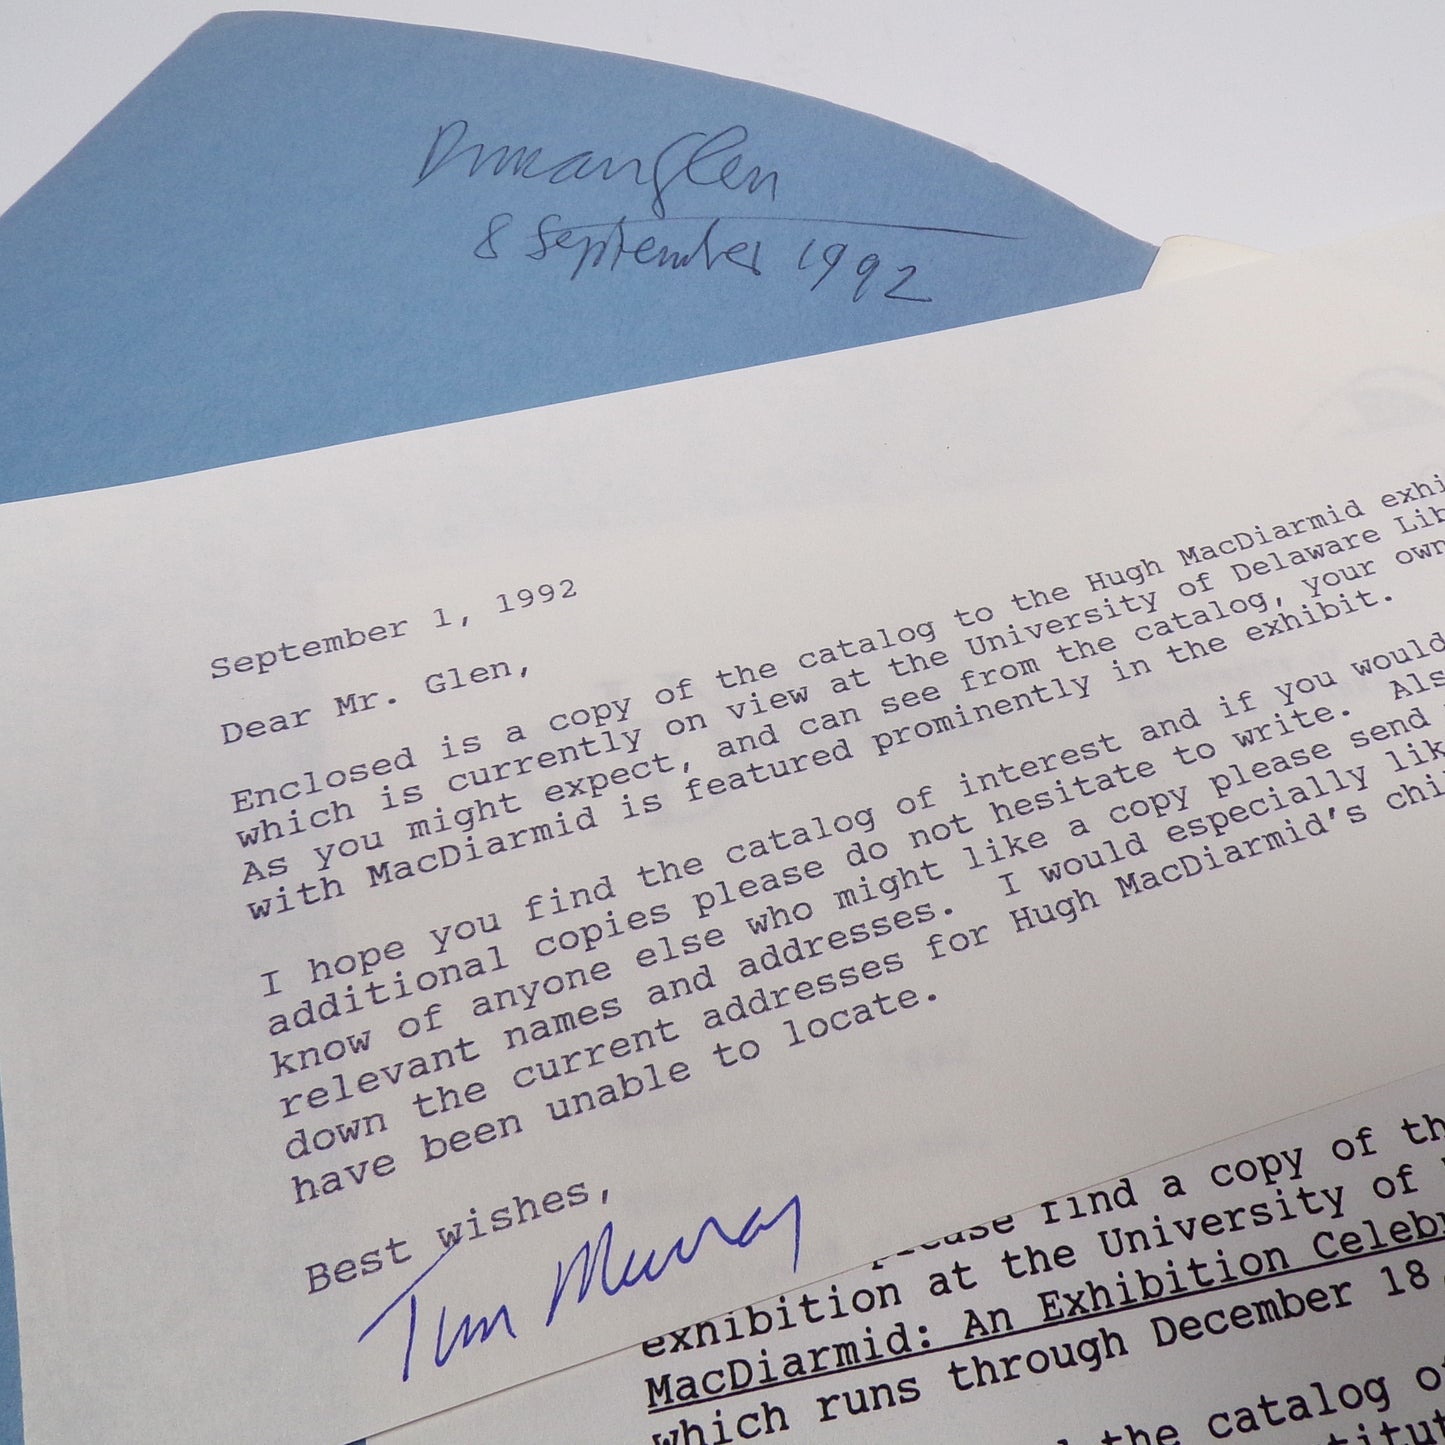 Duncan Glen
8 September 1992
September 1, 1992
Dear Mr. Glen,
Enclosed is a copy of the catalog to the Hugh MacDiarmid exhi
which is currently on view at the University of Delaware Lib
As you might expect, and can see from the catalog, your own
with MacDiarmid is featured prominently in the exhibit.
I hope you find the catalog of interest and if you would
additional copies please do not hesitate to write. Als
know of anyone else who might like a copy please send
relevant names and addresses. I would especially lik
down the current addresses for Hugh MacDiarmid's chi
have been unable to locate.
Best wishes,
Tim Murray
please find a copy of th
exhibition at the University of
MacDiarmid: An Exhibition Celebr
which runs through December 18
the catalog o
titut